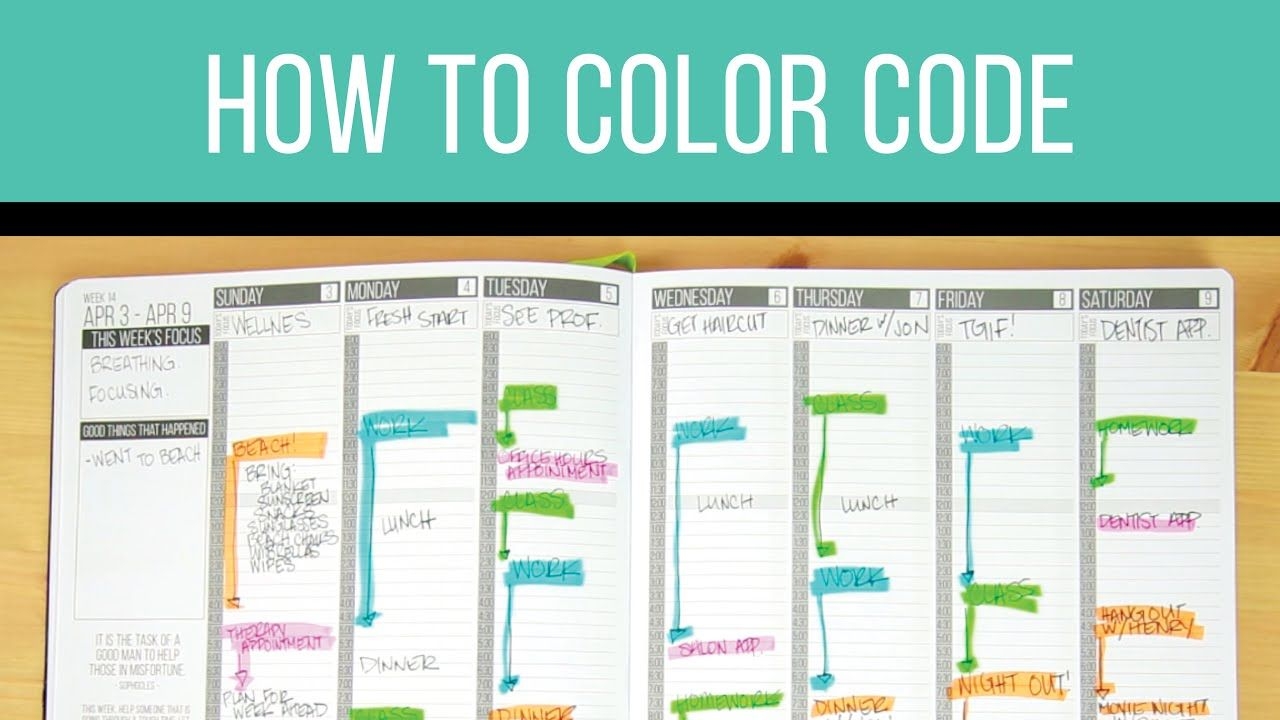 HOW TO COLOR CODE
WEEK 14
APR 3 - APR 9
THIS WEEK'S FOCUS
BREATHING.
FOCUSING.
GOOD THINGS THAT HAPPENED
-WENT TO BEACH
IT IS THE TASK OF A
GOOD MAN TO HELP
THOSE IN MISFORTUNE.
- SOPHOCLES -
THIS WEEK, HELP SOMEONE THAT IS
SUNDAY 3
TODAY'S FOCUS
WELLNES
BEACH!
BRING:
BLANKET
SUNSCREEN
SNACKS
SUNGLASSES
BEACH CHAIRS
UMBRELLAS
WIPES
THERAPY
APPOINTMENT
PLAN FOR
WEEK AHEAD
MONDAY 4
TODAY'S FOCUS
FRESH START
WORK
LUNCH
DINNER
CLASS
TUESDAY 5
TODAY'S FOCUS
SEE PROF.
CLASS
OFFICE HOURS
APPOINTMENT
CLASS
WORK
DINNER
WEDNESDAY 6
TODAY'S FOCUS
GET HAIRCUT
WORK
LUNCH
SALON APP.
HOMEWORK
THURSDAY 7
TODAY'S FOCUS
DINNER W/JON
CLASS
LUNCH
WORK
DINNER
FRIDAY 8
TODAY'S FOCUS
TGIF!
WORK
CLASS
NIGHT OUT!
SATURDAY 9
TODAY'S FOCUS
DENTIST APP.
HOMEWORK
DENTIST APP.
HANG OUT
W/ HENRY
MOVIE NIGHT